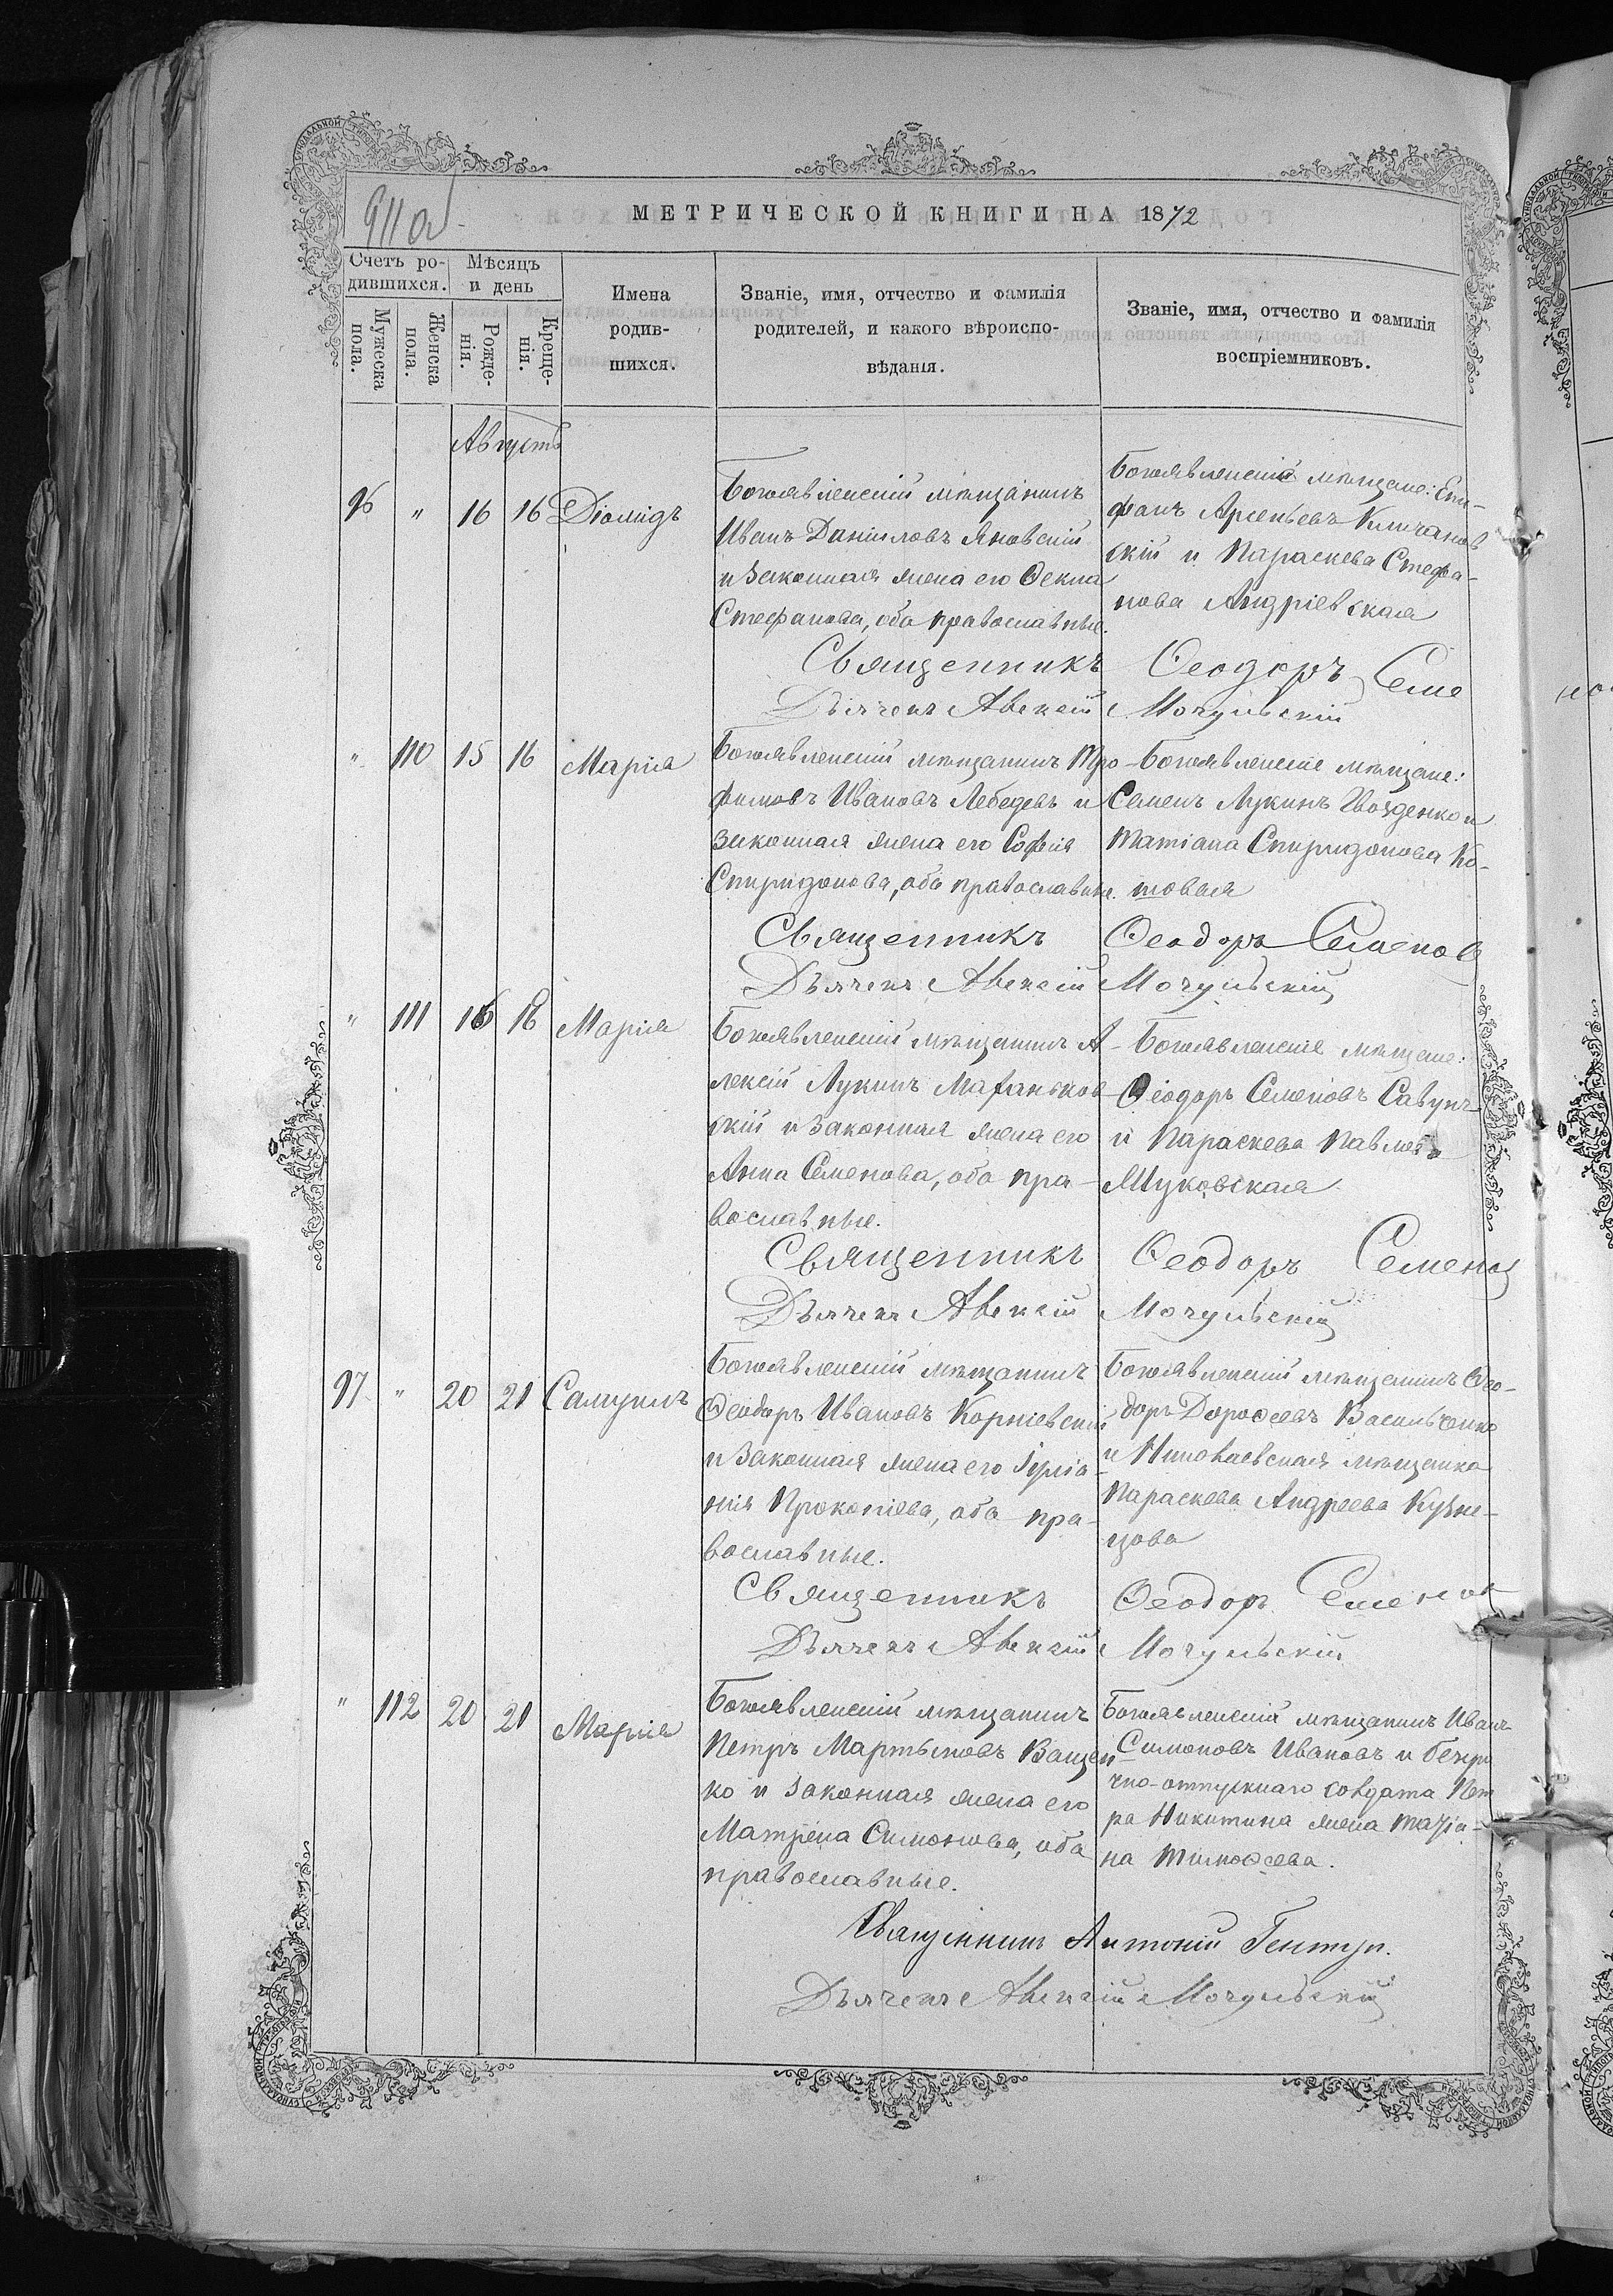 911 об
МЕТРИЧЕСКОЙ КНИГИ НА 1872
Счетъ ро-
дившихся.
Мѣсяцъ
и день
Мужеска
пола.
Женска
пола.
Рожде-
нія.
Креще-
нія.
Имена
родив-
шихся.
Званіе, имя, отчество и фамилія
родителей, и какого вѣроиспо-
вѣданія.
Званіе, имя, отчество и фамилія
воспріемниковъ.
Августъ
96 " 16 16 Діомидъ
Богоявленскій мѣщанинъ
Иванъ Даниловъ Яновскій
и законная жена его Ѳекла
Стефанова, оба православные.
Богоявленскіе мѣщане: Епи-
фанъ Арсеньевъ
скій и Параскева Стефа-
нова Андріевская
Священникъ Ѳеодоръ Семе
Дьячекъ Алексій Мочульскій
" 110 15 16 Марія
Богоявленскій мѣщанинъ Тро-
фимовъ Ивановъ Лебедевъ и
законная жена его Софія
Спиридонова, оба православные.
Богоявленскіе мѣщане:
Семенъ Лукинъ Гвозденко и
Татіана Спиридонова Ко-
товая
Священникъ Ѳеодоръ Семенов
Дьячекъ Алексій Мочульскій
" 111 16 18 Марія
Богоявленскій мѣщанинъ А-
лексій Лукинъ
скій и законная жена его
Анна Семенова, оба пра-
вославные.
Богоявленскіе мѣщане:
Ѳеодоръ Семеновъ Савунъ
и Параскева Павлова
Жуковская
Священникъ Ѳеодоръ Семенов
Дьячекъ Алексій Мочульскій
97 " 20 21 Самуилъ
Богоявленскій мѣщанинъ
Ѳеодоръ Ивановъ Корніевскій
и законная жена его Іуліа-
нія Прокопіева, оба пра-
вославные.
Богоявленскій мѣщанинъ Ѳео-
доръ Дороѳеевъ Васильченко
и Николаевская мѣщанка
Параскева Андреева Кузне-
цова
Священникъ Ѳеодоръ Семенов
Дьячекъ Алексій Мочульскій
" 112 20 21 Марія
Богоявленскій мѣщанинъ
Петръ Мартыновъ Ващен-
ко и законная жена его
Матрена Симонова, оба
православные.
Богоявленскій мѣщанинъ Иванъ
Симоновъ Ивановъ и безсро
чно-отпускнаго солдата Пет
ра Никитина жена Татіа-
на Тимоѳеева.
Священникъ Антоній
Дьячекъ Алексій Мочульскій